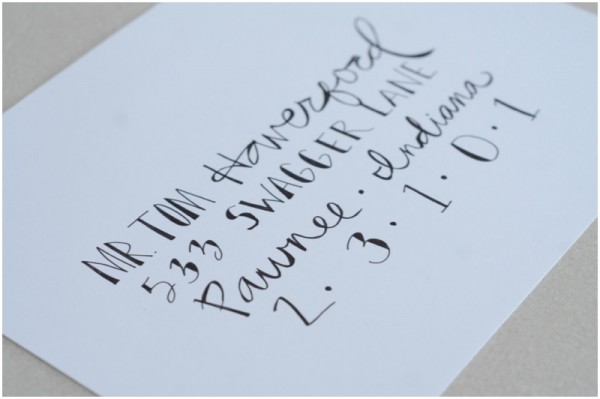 MR. TOM Haverford
533 SWAGGER LANE
Pawnee · Indiana
2 · 3 · 1 · 0 · 1